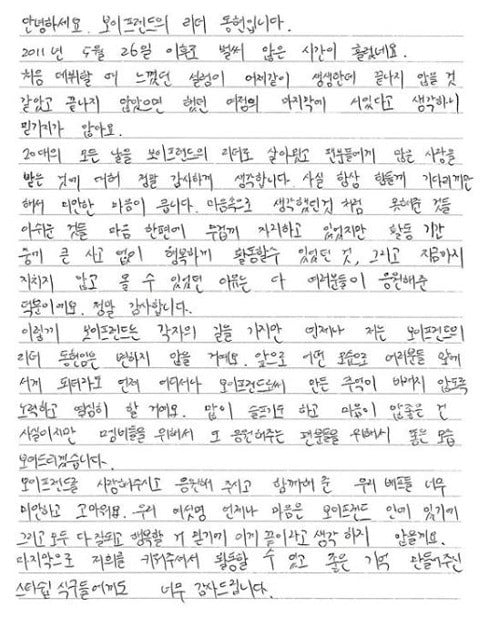 안녕하세요. 보이프렌드의 리더 동현입니다.
2011년 5월 26일 이후로 벌써 많은 시간이 흘렀네요.
처음 데뷔할 때 느꼈던 설렘이 어제같이 생생한데 끝나지 않을 것
같았고 끝나지 않았으면 했던 여정의 마지막에 서있다고 생각하니
믿기지가 않아요.
20대의 모든 날을 보이프렌드의 리더로 살아왔고 팬분들에게 많은 사랑을
받는 것에 대해 정말 감사하게 생각합니다. 사실 항상 힘들게 기다리게만
해서 미안한 마음이 큽니다. 마음속으로 생각했던것 처럼 못해준 것들
아쉬운 것들 마음 한편에 무겁게 자리하고 있었지만 활동 기간
중에 큰 사고 없이 행복하게 활동할수 있었던 것, 그리고 지금까지
지치지 않고 올 수 있었던 이유는 다 여러분들이 응원해준
덕분이에요. 정말 감사합니다.
이렇게 보이프렌드는 각자의 길을 가지만 언제나 저는 보이프렌드의
리더 동현임은 변하지 않을 거예요. 앞으로 어떤 모습으로 여러분들 앞에
서게 되더라도 언제 어디서나 보이프렌드로써 만든 추억이 바래지 않도록
노력하고 열심히 할 거예요. 많이 슬프기도 하고 마음이 안좋은 건
사실이지만 멤버들을 위해서 또 응원해주는 팬분들을 위해서 좋은 모습
보여드리겠습니다.
보이프렌드를 사랑해주시고 응원해 주시고 함께해 준 우리 베프들 너무
미안하고 고마워요. 우리 여섯명 언제나 마음은 보이프렌드 안에 있기에
그리고 모두 다 잘되고 행복할 거 믿기에 이게 끝이라고 생각 하지 않을게요.
마지막으로 저희를 키워주셔서 활동할 수 있고 좋은 기억 만들어주신
스타쉽 식구들에게도 너무 감사드립니다.